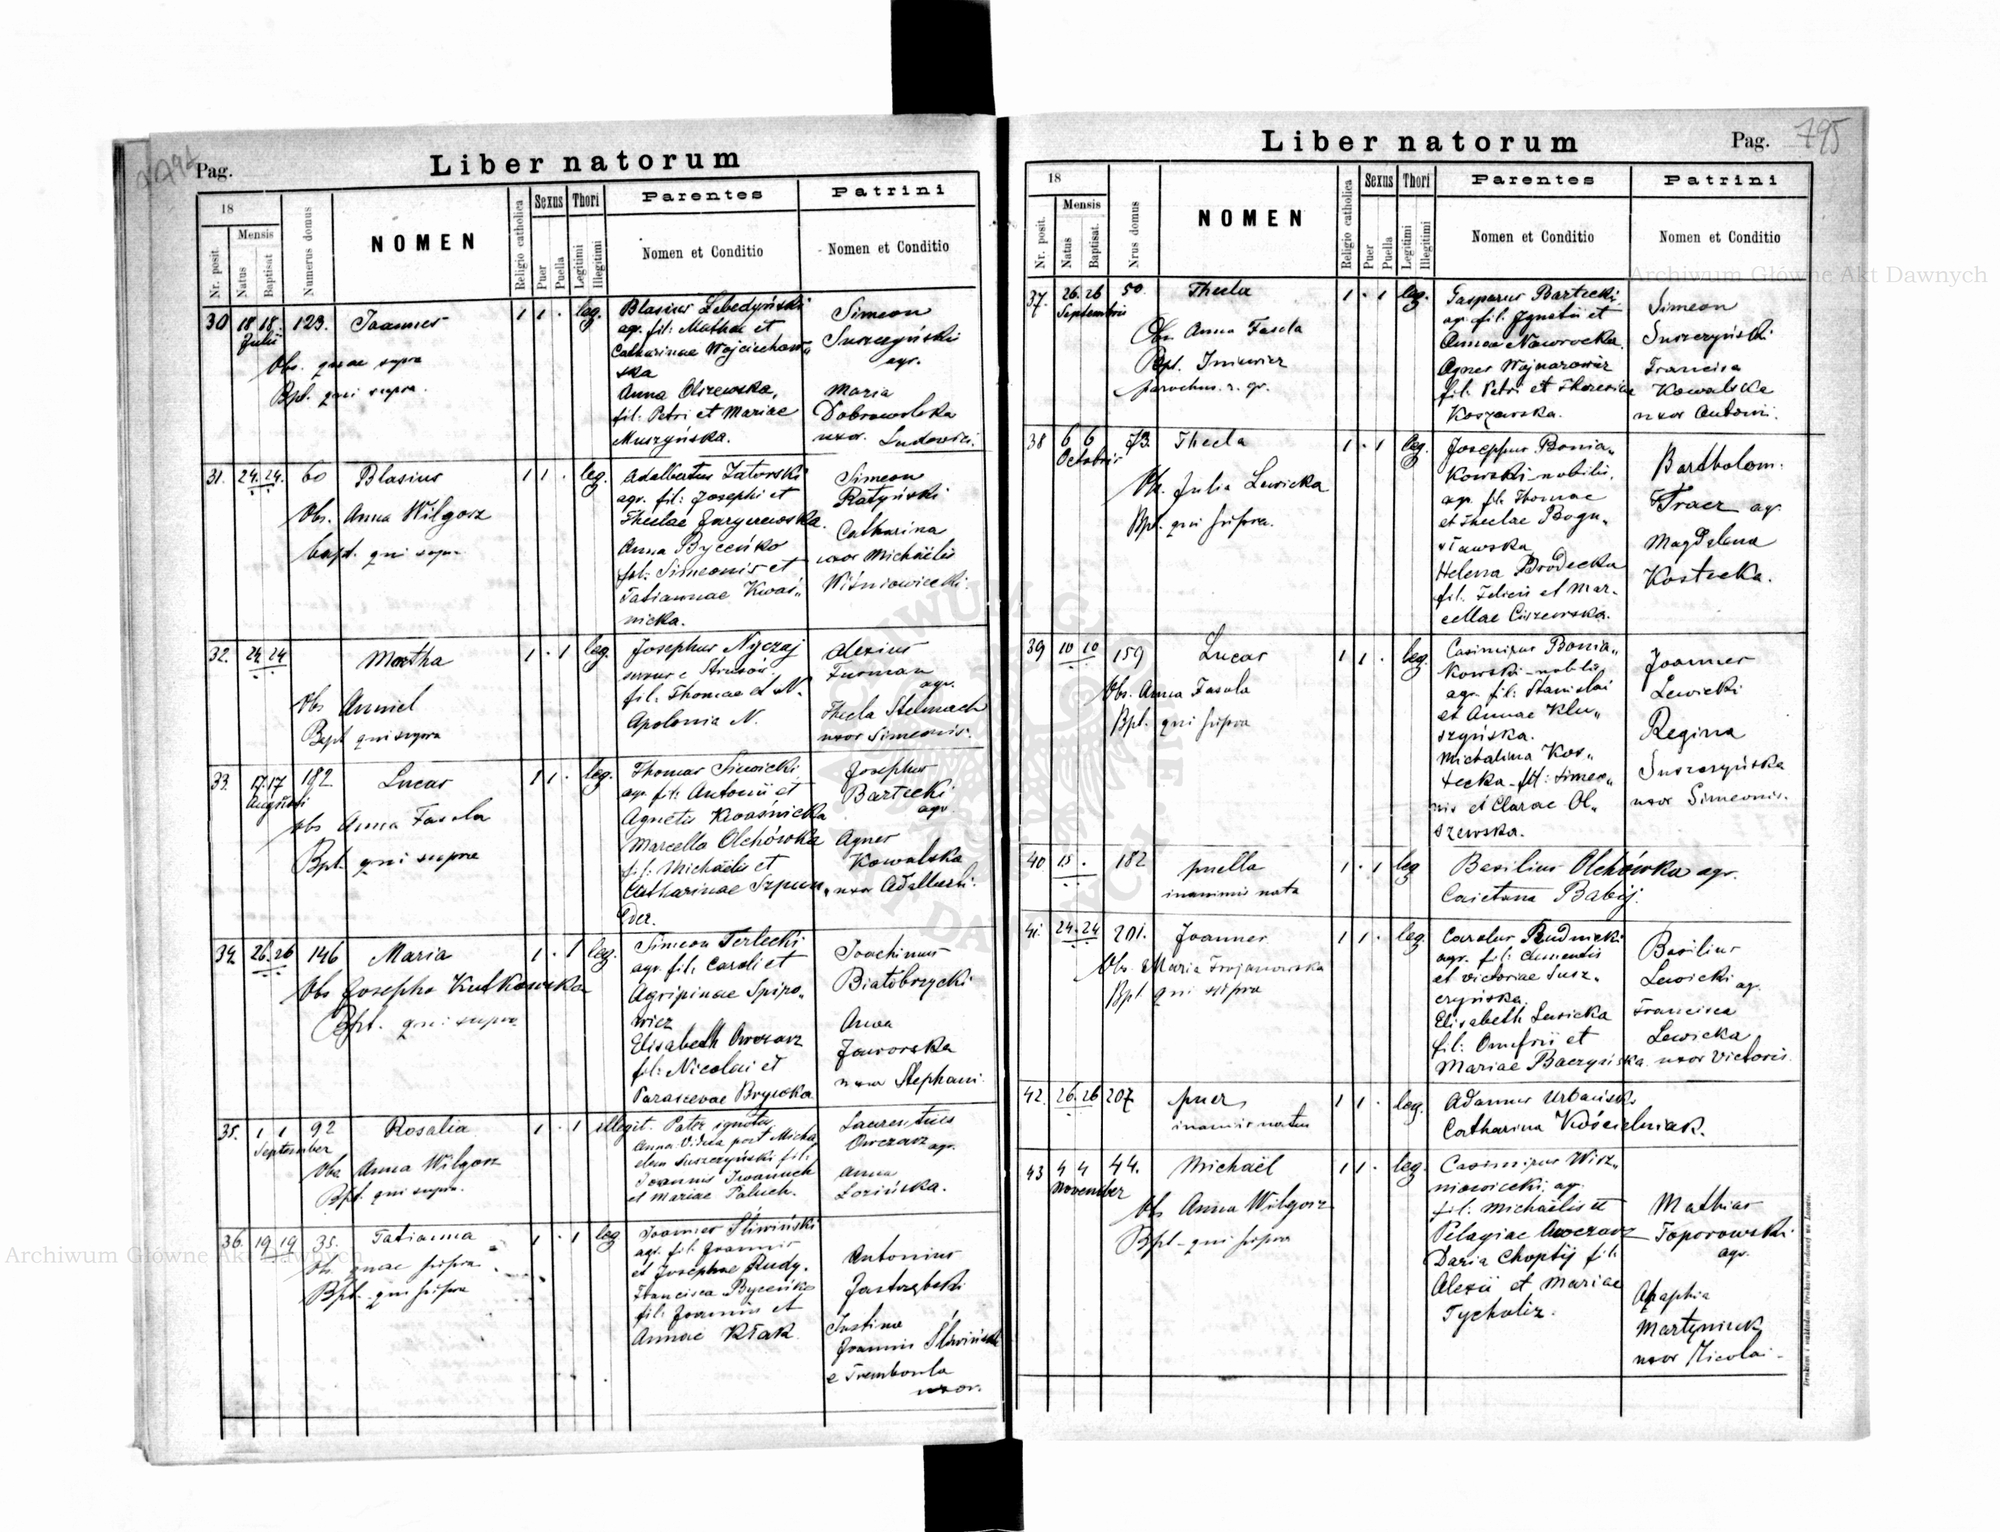 Pag.
Liber natorum
18
Nr. posit.
Mensis
Natus
Baptisat
Numerus domus
NOMEN
Religio catholica
Sexus
Puer
Puella
Thori
Legitimi
Illegitimi
Parentes
Nomen et Conditio
Patrini
Nomen et Conditio
30 18 18. 123. Joannes 1 1 . leg.
Julii
Obs. quae supra
Bpt. qui supra.
Blasius Lebedyński
agr. fil. Mathae et
Catharinae Wojciechow„
ska
Anna Olszewska,
fil. Petri et Mariae
Muszyńska.
Simeon
Suszczyński
agr.
Maria
Dobrowolska
uxor. Ludovici.
31. 24. 24. 60 Blasius 1 1 . leg.
Obs. Anna Wilgosz
bapt. qui supra
Adalbertus Zatorski
agr. fil: Josephi et
Theclae Juryczewska.
Anna Byceńko
fil: Simeonis et
Tatiannae Kwaś„
nicka.
Simeon
Ratyński
Catharina
uxor Michaëlis
Wiśniowiecki.
32. 24. 24 Martha 1 . 1 leg.
Obs
Bapt qui supra
Josephus Nyczaj
fil. Thomae et N.
Apolonia N.
Alexius
Furman
agr.
Thecla Stelmach
uxor Simeonis.
33. 17. 17 182 Lucas 1 1 . leg.
Augusti
obs Anna Fasula
Bpt. qui supra
Thomas Siwicki
agr. fil: Antonii et
Agnetis Kwaśnicka
Marcella Olchówka
fil: Michaëlis et
Catharinae Szpun„
der.
Josephus
Bartecki
agr.
Agnes
Kowalska
uxor Adalberti.
34. 26. 26 146 Maria 1 . 1 leg.
Obs Josepha Kutkowska
Bpt. qui supra
Simeon Terlecki
agr. fil. Caroli et
Agripinae Spiro„
wicz
Elisabeth Owczarz
fil: Nicolai et
Parascevae Brycka
Joachimus
Białobrzycki
Anna
Jaworska
uxor Stephani.
35. 1 1 92 Rosalia 1 . 1 illegit.
September
Obs Anna Wilgosz
Bpt. qui supra.
Pater ignotus
Anna Vidua post Micha„
elem Suszczyński fil.
Joannis Iwaniuch
et Mariae Paluch.
Laurentius
Owczarz
agr.
Anna
Łozińska.
36. 19 19 35. Tatianna 1 . 1 leg
Obs. quae supra
Bpt. qui supra
Joannes Śliwiński
agr. fil. Joannis
et Josephae Rudy.
Francisca Byceńko
fil. Joannis et
Annae Kłak.
Antonius
Jastrzębski
Justina
Joannis Śliwiński
e Trembowla
uxor.
Liber natorum
Pag. 795
18
Nr. posit.
Mensis
Natus
Baptisat.
Nrus domus
NOMEN
Religio catholica
Sexus
Puer
Puella
Thori
Legitimi
Illegitimi
Parentes
Nomen et Conditio
Patrini
Nomen et Conditio
37. 26. 26 50. Thecla 1 . 1 leg.
Septembris
Obs. Anna Fasula
Bpt.
parochus. r. gr.
Gasparus Bartecki
agr. fil. Ignatii et
Annae Naworocka.
Agnes Wojnarowicz
fil. Petri et Theresiae
Koszewska.
Simeon
Suszczyński
Francisca
Kowalska
uxor Antoni.
38 6 6 73. Thecla 1 . 1 leg.
Octobris
Ob. Julia Lewicka
Bpt. qui supra.
Josephus Bonia„
kowski - nobilis,
agr. fil. Thomae
et Theclae Bogu„
sławska
Helena Brodecka
fil. Felicis et Mar„
cellae Ciszewska.
Bartholom.
Tracz agr.
Magdalena
Kostecka.
39 10 10 159 Lucas 1 1 . leg.
Obs. Anna Fasula
Bpt. qui supra
Casimirus Bonia„
kowski - nobilis
agr. fil: Stanislai
et Annae Klu„
szyńska.
Michalina Kos„
tecka - fil: Simeo„
nis et Clarae Ol„
szewska.
Joannes
Lewicki
Regina
Suszczyńska
uxor Simeonis.
40 15 . 182 puella 1 . 1 leg
inanimis nata
Basilius Olchówka agr.
Caietana Babij.
41. 24. 24 201. Joannes 1 1 . leg.
Obs. Maria Trojanowska
Bpt. qui supra
Carolus Rudnicki
agr. fil: Clementis
et Victoriae Susz„
czyńska.
Elisabeth Lewicka
fil: Onufrii et
Mariae Baczyńska.
Basilius
Lewicki agr.
Francisca
Lewicka
uxor Victoris.
42. 26. 26 207 puer, 1 1 . leg.
inanimis natus
Adamus Urbański
Catharina Kościelniak.
43 4 4 44. Michaël 1 1 . leg.
November
Obs Anna Wilgosz
Bpt - qui supra
Casimirus Wisz„
niowiecki. agr.
fil: Michaëlis et
Pelagiae Owczarz
Daria Choptij fil.
Alexii et Mariae
Tycholiz.
Mathias
Toporowski
agr.
Agaphia
Martyniuk
uxor Nicolai -
Archiwum Główne Akt Dawnych
Archiwum Główne Akt Dawnych
ARCHIWUM GŁÓWNE AKT DAWNYCH